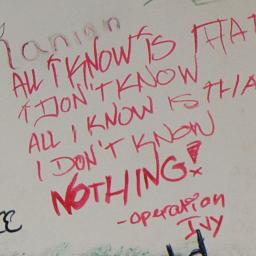 ALL I KNOW IS THAT
I DON'T KNOW
ALL I KNOW IS THA
I DON'T KNOW
NOTHING!
-operation
IVY